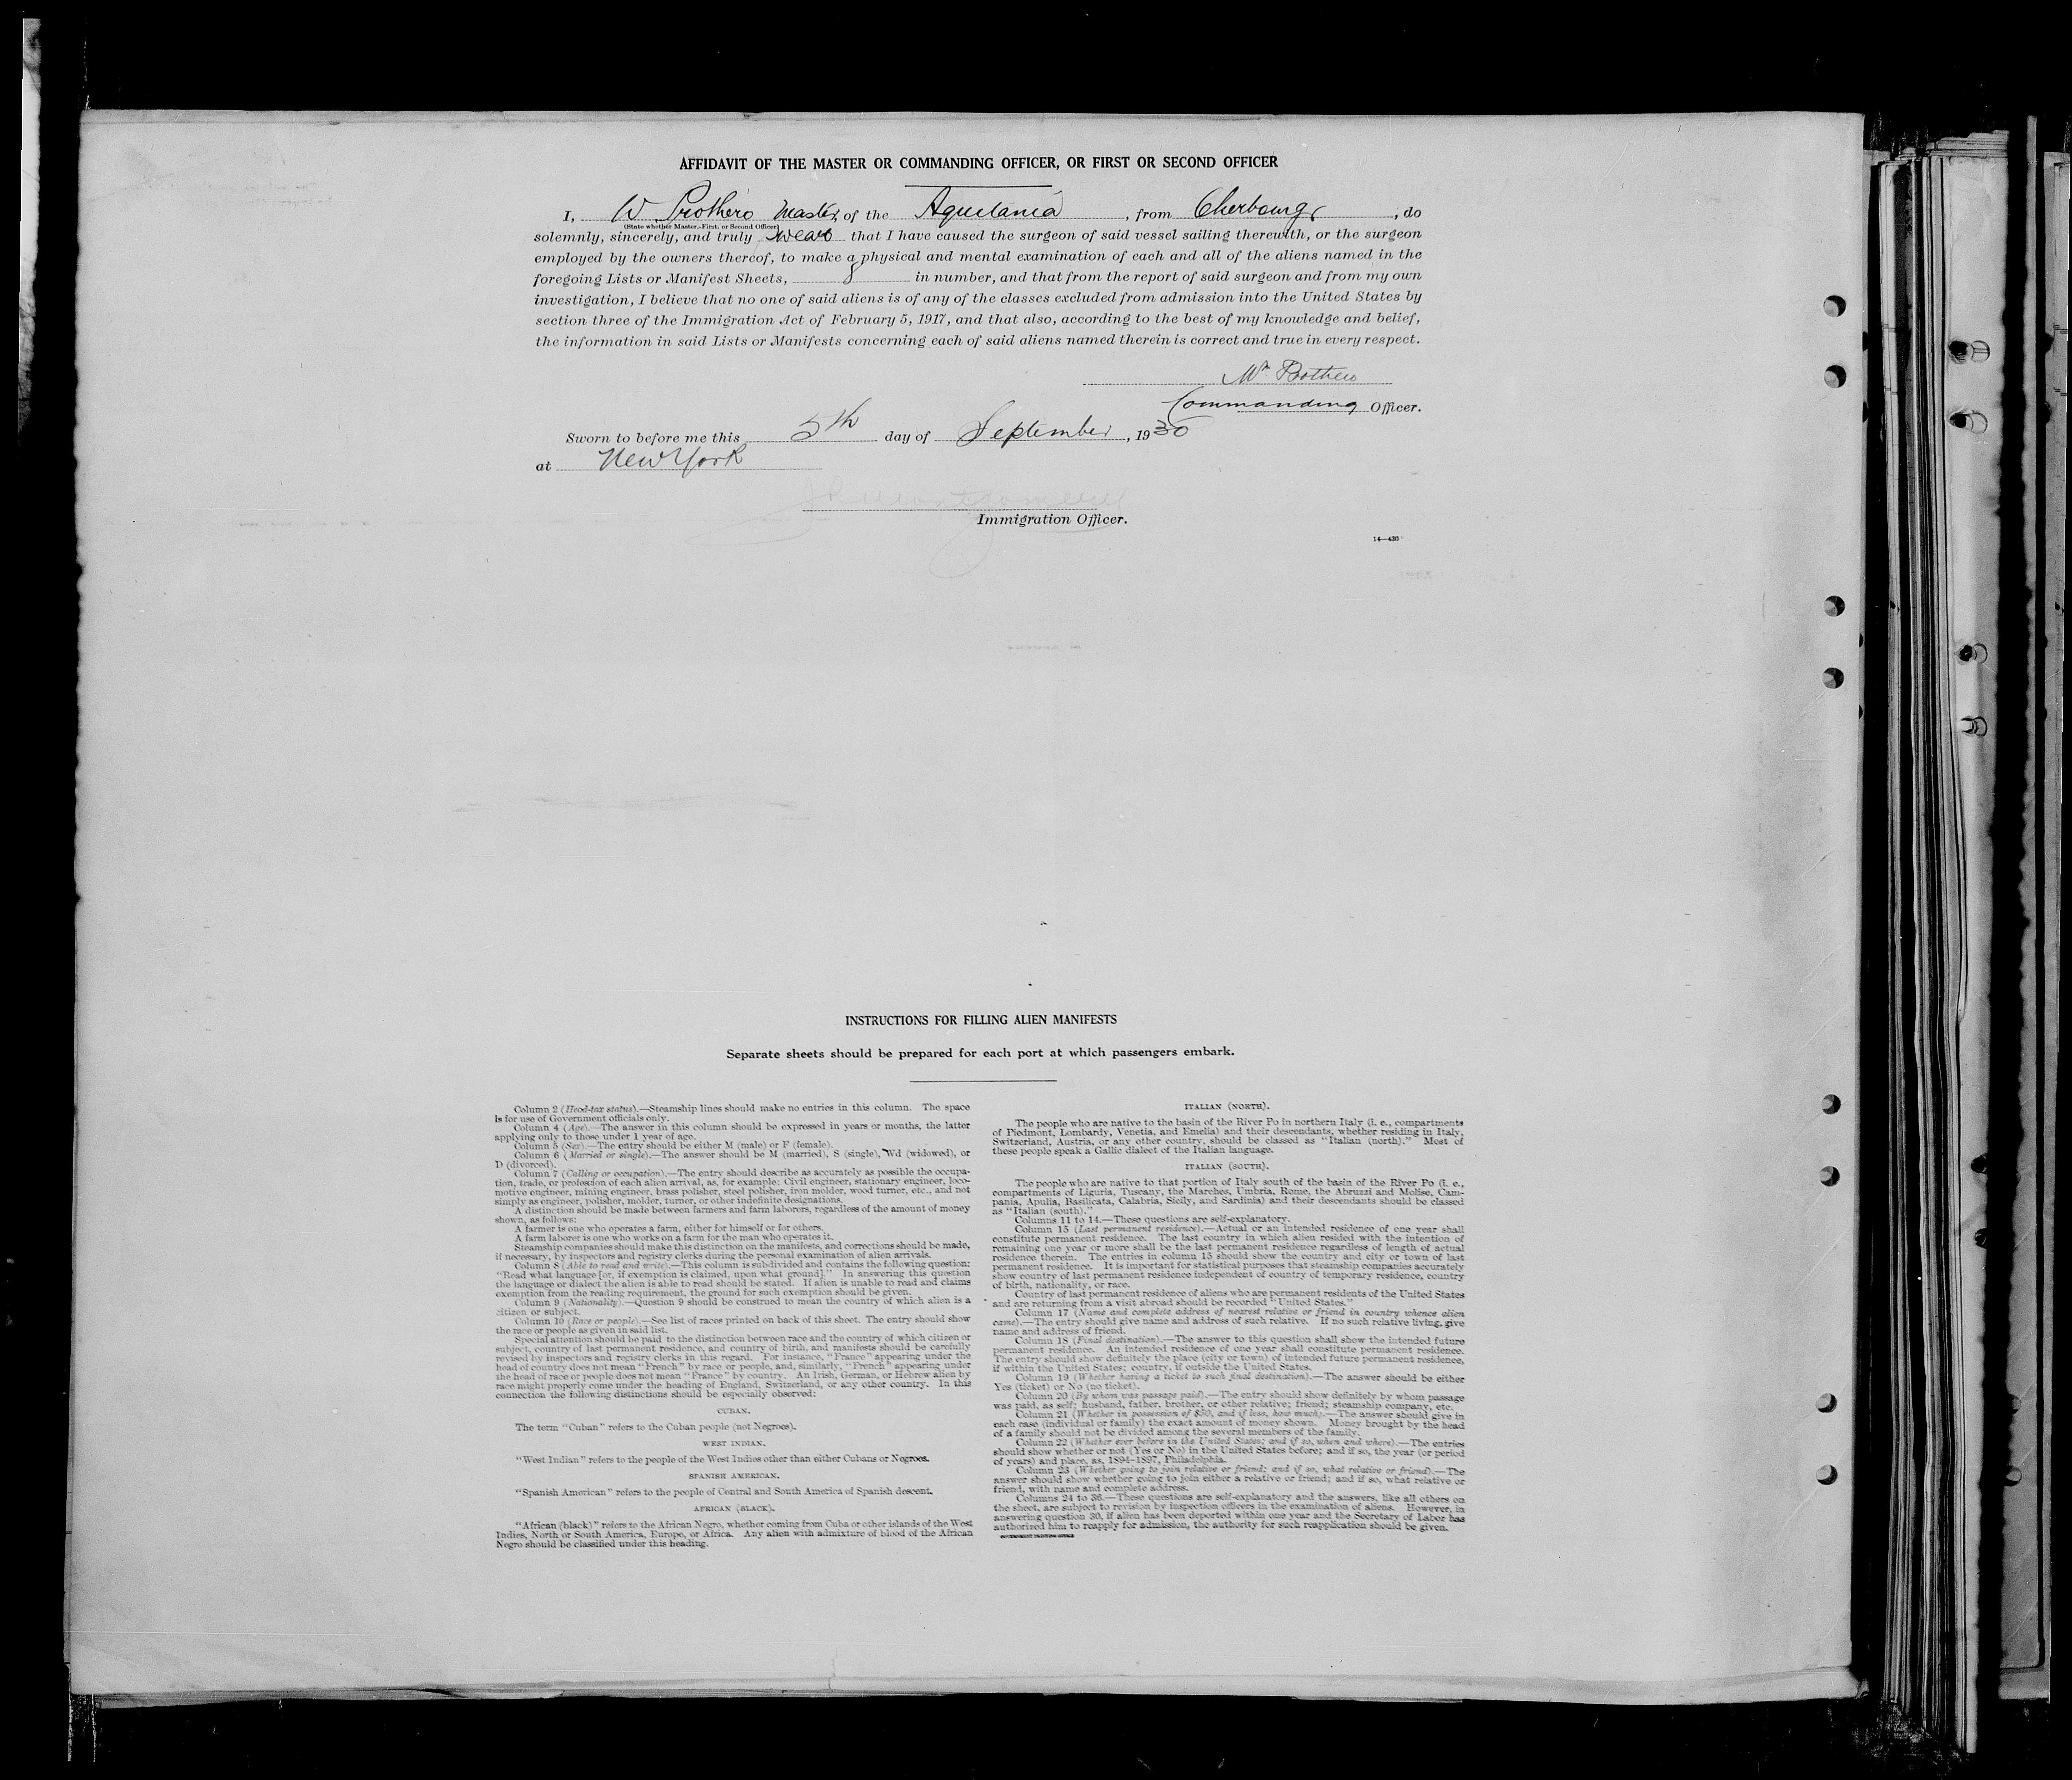 AFFIDAVIT OF THE MASTER OR COMMANDING OFFICER, OR FIRST OR SECOND OFFICER
I, W Prothero Master, of the Aquitania, from Cherbourg, do
(State whether Master, First, or Second Officer)
solemnly, sincerely, and truly swear that I have caused the surgeon of said vessel sailing therewith, or the surgeon
employed by the owners thereof, to make a physical and mental examination of each and all of the aliens named in the
foregoing Lists or Manifest Sheets, 8 in number, and that from the report of said surgeon and from my own
investigation, I believe that no one of said aliens is of any of the classes excluded from admission into the United States by
section three of the Immigration Act of February 5, 1917, and that also, according to the best of my knowledge and belief,
the information in said Lists or Manifests concerning each of said aliens named therein is correct and true in every respect.
Wm Prothero
Commanding Officer.
Sworn to before me this 5th day of September, 1930
at New York
Immigration Officer.
14—430
INSTRUCTIONS FOR FILLING ALIEN MANIFESTS
Separate sheets should be prepared for each port at which passengers embark.
Column 2 (Head-tax status).—Steamship lines should make no entries in this column. The space
is for use of Government officials only.
Column 4 (Age).—The answer in this column should be expressed in years or months, the latter
applying only to those under 1 year of age.
Column 5 (Sex).—The entry should be either M (male) or F (female).
Column 6 (Married or single).—The answer should be M (married), S (single), Wd (widowed), or
D (divorced).
Column 7 (Calling or occupation).—The entry should describe as accurately as possible the occupa-
tion, trade, or profession of each alien arrival, as, for example: Civil engineer, stationary engineer, loco-
motive engineer, mining engineer, brass polisher, steel polisher, iron molder, wood turner, etc., and not
simply as engineer, polisher, molder, turner, or other indefinite designations.
A distinction should be made between farmers and farm laborers, regardless of the amount of money
shown, as follows:
A farmer is one who operates a farm, either for himself or for others.
A farm laborer is one who works on a farm for the man who operates it.
Steamship companies should make this distinction on the manifests, and corrections should be made,
if necessary, by inspectors and registry clerks during the personal examination of alien arrivals.
Column 8 (Able to read and write).—This column is subdivided and contains the following question:
“Read what language [or, if exemption is claimed, upon what ground].” In answering this question
the language or dialect the alien is able to read should be stated. If alien is unable to read and claims
exemption from the reading requirement, the ground for such exemption should be given.
Column 9 (Nationality).—Question 9 should be construed to mean the country of which alien is a
citizen or subject.
Column 10 (Race or people).—See list of races printed on back of this sheet. The entry should show
the race or people as given in said list.
Special attention should be paid to the distinction between race and the country of which citizen or
subject, country of last permanent residence, and country of birth, and manifests should be carefully
revised by inspectors and registry clerks in this regard. For instance, “France” appearing under the
head of country does not mean “French” by race or people, and, similarly, “French” appearing under
the head of race or people does not mean “France” by country. An Irish, German, or Hebrew alien by
race might properly come under the heading of England, Switzerland, or any other country. In this
connection the following distinctions should be especially observed:
CUBAN.
The term “Cuban” refers to the Cuban people (not Negroes).
WEST INDIAN.
“West Indian” refers to the people of the West Indies other than either Cubans or Negroes.
SPANISH AMERICAN.
“Spanish American” refers to the people of Central and South America of Spanish descent.
AFRICAN (BLACK).
“African (black)” refers to the African Negro, whether coming from Cuba or other islands of the West
Indies, North or South America, Europe, or Africa. Any alien with admixture of blood of the African
Negro should be classified under this heading.
ITALIAN (NORTH).
The people who are native to the basin of the River Po in northern Italy (i. e., compartments
of Piedmont, Lombardy, Venetia, and Emelia) and their descendants, whether residing in Italy,
Switzerland, Austria, or any other country, should be classed as “Italian (north).” Most of
these people speak a Gallic dialect of the Italian language.
ITALIAN (SOUTH).
The people who are native to that portion of Italy south of the basin of the River Po (i. e.,
compartments of Liguria, Tuscany, the Marches, Umbria, Rome, the Abruzzi and Molise, Cam-
pania, Apulia, Basilicata, Calabria, Sicily, and Sardinia) and their descendants should be classed
as “Italian (south).”
Columns 11 to 14.—These questions are self-explanatory.
Column 15 (Last permanent residence).—Actual or an intended residence of one year shall
constitute permanent residence. The last country in which alien resided with the intention of
remaining one year or more shall be the last permanent residence regardless of length of actual
residence therein. The entries in column 15 should show the country and city or town of last
permanent residence. It is important for statistical purposes that steamship companies accurately
show country of last permanent residence independent of country of temporary residence, country
of birth, nationality, or race.
Country of last permanent residence of aliens who are permanent residents of the United States
and are returning from a visit abroad should be recorded “United States.”
Column 17 (Name and complete address of nearest relative or friend in country whence alien
came).—The entry should give name and address of such relative. If no such relative living, give
name and address of friend.
Column 18 (Final destination).—The answer to this question shall show the intended future
permanent residence. An intended residence of one year shall constitute permanent residence.
The entry should show definitely the place (city or town) of intended future permanent residence,
if within the United States; country, if outside the United States.
Column 19 (Whether having a ticket to such final destination).—The answer should be either
Yes (ticket) or No (no ticket).
Column 20 (By whom was passage paid).—The entry should show definitely by whom passage
was paid, as self; husband, father, brother, or other relative; friend; steamship company, etc.
Column 21 (Whether in possession of $50, and if less, how much).—The answer should give in
each case (individual or family) the exact amount of money shown. Money brought by the head
of a family should not be divided among the several members of the family.
Column 22 (Whether ever before in the United States; and if so, when and where).—The entries
should show whether or not (Yes or No) in the United States before; and if so, the year (or period
of years) and place, as, 1894–1897, Philadelphia.
Column 23 (Whether going to join relative or friend; and if so, what relative or friend).—The
answer should show whether going to join either a relative or friend; and if so, what relative or
friend, with name and complete address.
Columns 24 to 36.—These questions are self-explanatory and the answers, like all others on
the sheet, are subject to revision by inspection officers in the examination of aliens. However, in
answering question 30, if alien has been deported within one year and the Secretary of Labor has
authorized him to reapply for admission, the authority for such reapplication should be given.